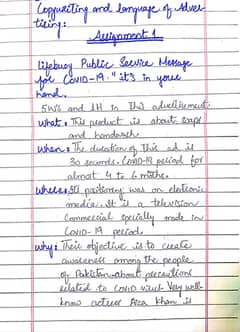 Copywriting and language of Adver
tising:
Assignment 1
Lifebuoy Public Service Message
for COVID-19 "it's in your
hand.
5W's and 1H in This advertisement.
What: This product is about soaps
and handwash
When: The duration of this ad is
30 seconds. COVID-19 period for
almost 4 to 6 months.
Where: It's positioning was on electronic
media. It is a television
Commercial specially made in
COVID-19 period.
Why: Their objective is to create
awareness among the people
of Pakistan about precautions
related to COVID virus. Very well
know actress Aiza Khan is